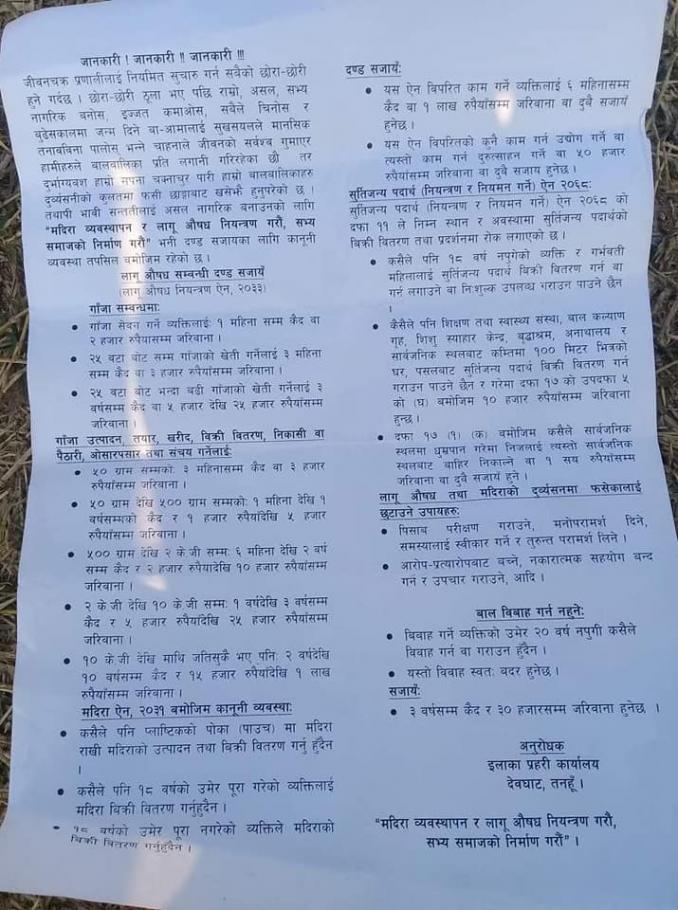 जानकारी ! जानकारी !! जानकारी !!!
जीवनचक्र प्रणालीलाई नियमित सुचारु गर्न सवैको छोरा-छोरी
हुने गर्दछ । छोरा-छोरी ठूला भए पछि राम्रो, असल, सभ्य
नागरिक बनोस्, इज्जत कमाओस्, सवैले चिनोस् र
बुढेसकालमा जन्म दिने बा-आमालाई सुखसयलले मानसिक
तनाबविना पालोस् भन्ने चाहनाले जीवनको सर्वश्व गुमाएर
हामीहरुले बालबालिका प्रति लगानी गरिरहेका छौ तर
दुर्भाग्यवश हाम्रो सपना चक्नाचुर पारी हाम्रो बालबालिकाहरु
दुर्व्यसनीको कुलतमा फसी छाडाबाट खसेझै हुनुपरेको छ ।
तथापी भावी सन्ततीलाई असल नागरिक बनाउनको लागि
"मदिरा व्यवस्थापन र लागू औषध नियन्त्रण गरौं, सभ्य
समाजको निर्माण गरौं" भनी दण्ड सजायका लागि कानूनी
व्यवस्था तपसिल बमोजिम रहेको छ ।
लागू औषध सम्बन्धी दण्ड सजायँ
(लागू औषध नियन्त्रण ऐन, २०३३)
गाँजा सम्बन्धमाः
• गाँजा सेवन गर्ने व्यक्तिलाईः १ महिना सम्म कैद वा
२ हजार रुपैयाँसम्म जरिवाना ।
• २५ वटा बोट सम्म गाँजाको खेती गर्नेलाई ३ महिना
सम्म कैद वा ३ हजार रुपैयाँसम्म जरिवाना ।
• २५ वटा बोट भन्दा बढी गाँजाको खेती गर्नेलाई ३
वर्षसम्म कैद वा ५ हजार देखि २५ हजार रुपैयाँसम्म
जरिवाना ।
गाँजा उत्पादन, तयार, खरीद, विक्री वितरण, निकासी वा
पैठारी, ओसारपसार तथा संचय गर्नेलाईः
• ५० ग्राम सम्मकोः ३ महिनासम्म कैद वा ३ हजार
रुपैयाँसम्म जरिवाना ।
• ५० ग्राम देखि ५०० ग्राम सम्मकोः १ महिना देखि १
वर्षसम्मको कैद र १ हजार रुपैयाँदेखि ५ हजार
रुपैयाँसम्म जरिवाना ।
• ५०० ग्राम देखि २ के.जी सम्मः ६ महिना देखि २ वर्ष
सम्म कैद र २ हजार रुपैयादेखि १० हजार रुपैयाँसम्म
जरिवाना ।
• २ के.जी देखि १० के.जी सम्मः १ वर्षदेखि ३ वर्षसम्म
कैद र ५ हजार रुपैयाँदेखि २५ हजार रुपैयाँसम्म
जरिवाना ।
• १० के.जी देखि माथि जतिसुकै भए पनिः २ वर्षदेखि
१० वर्षसम्म कैद र १५ हजार रुपैयाँदेखि १ लाख
रुपैयाँसम्म जरिवाना ।
मदिरा ऐन, २०३१ बमोजिम कानूनी व्यवस्थाः
• कसैले पनि प्लाष्टिकको पोका (पाउच) मा मदिरा
राखी मदिराको उत्पादन तथा विक्री वितरण गर्नु हुँदैन
।
• कसैले पनि १८ वर्षको उमेर पूरा गरेको व्यक्तिलाई
मदिरा विक्री वितरण गर्नुहुदैन ।
• १८ वर्षको उमेर पूरा नगरेको व्यक्तिले मदिराको
विक्री वितरण गर्नुहुँदैन ।
दण्ड सजायँः
• यस ऐन विपरित काम गर्ने व्यक्तिलाई ६ महिनासम्म
कैद वा १ लाख रुपैयाँसम्म जरिवाना वा दुवै सजायँ
हुनेछ ।
• यस ऐन विपरितको कुनै काम गर्न उद्योग गर्ने वा
त्यस्तो काम गर्न दुरुत्साहन गर्ने वा ५० हजार
रुपैयाँसम्म जरिवाना वा दुवै सजाय हुनेछ ।
सुर्तिजन्य पदार्थ (नियन्त्रण र नियमन गर्ने) ऐन २०६८ः
सुर्तिजन्य पदार्थ (नियन्त्रण र नियमन गर्ने) ऐन २०६८ को
दफा ११ ले निम्न स्थान र अवस्थामा सुर्तिजन्य पदार्थको
बिक्री वितरण तथा प्रदर्शनमा रोक लगाएको छ ।
• कसैले पनि १८ वर्ष नपुगेको व्यक्ति र गर्भवती
महिलालाई सुर्तिजन्य पदार्थ विक्री वितरण गर्न वा
गर्न लगाउने वा निःशुल्क उपलब्ध गराउन पाउने छैन
।
• कसैले पनि शिक्षण तथा स्वास्थ्य संस्था, बाल कल्याण
गृह, शिशु स्याहार केन्द्र, बृद्धाश्रम, अनाथालय र
सार्वजनिक स्थलबाट कम्तिमा १०० मिटर भित्रको
घर, पसलबाट सुर्तिजन्य पदार्थ विक्री वितरण गर्न
गराउन पाउने छैन र गरेमा दफा १७ को उपदफा ५
को (घ) बमोजिम १० हजार रुपैयाँसम्म जरिवाना
हुन्छ ।
• दफा १७ (१) (क) बमोजिम कसैले सार्वजनिक
स्थलमा धुम्रपान गरेमा निजलाई त्यस्तो सार्वजनिक
स्थलबाट बाहिर निकाल्ने वा १ सय रुपैयाँसम्म
जरिवाना वा दुबै सजायँ हुने ।
लागू औषध तथा मदिराको दुर्व्यसनमा फसेकालाई
छुटाउने उपायहरुः
• पिसाब परीक्षण गराउने, मनोपरामर्श दिने,
समस्यालाई स्वीकार गर्ने र तुरुन्त परामर्श लिने ।
• आरोप-प्रत्यारोपबाट बच्ने, नकारात्मक सहयोग बन्द
गर्न र उपचार गराउने, आदि ।
बाल विबाह गर्न नहुनेः
• विवाह गर्ने व्यक्तिको उमेर २० वर्ष नपुगी कसैले
विबाह गर्न वा गराउन हुँदैन ।
• यस्तो विबाह स्वतः बदर हुनेछ ।
सजायँः
• ३ वर्षसम्म कैद र ३० हजारसम्म जरिवाना हुनेछ ।
अनुरोधक
इलाका प्रहरी कार्यालय
देवघाट, तनहूँ ।
"मदिरा व्यवस्थापन र लागू औषध नियन्त्रण गरौं,
सभ्य समाजको निर्माण गरौं" ।